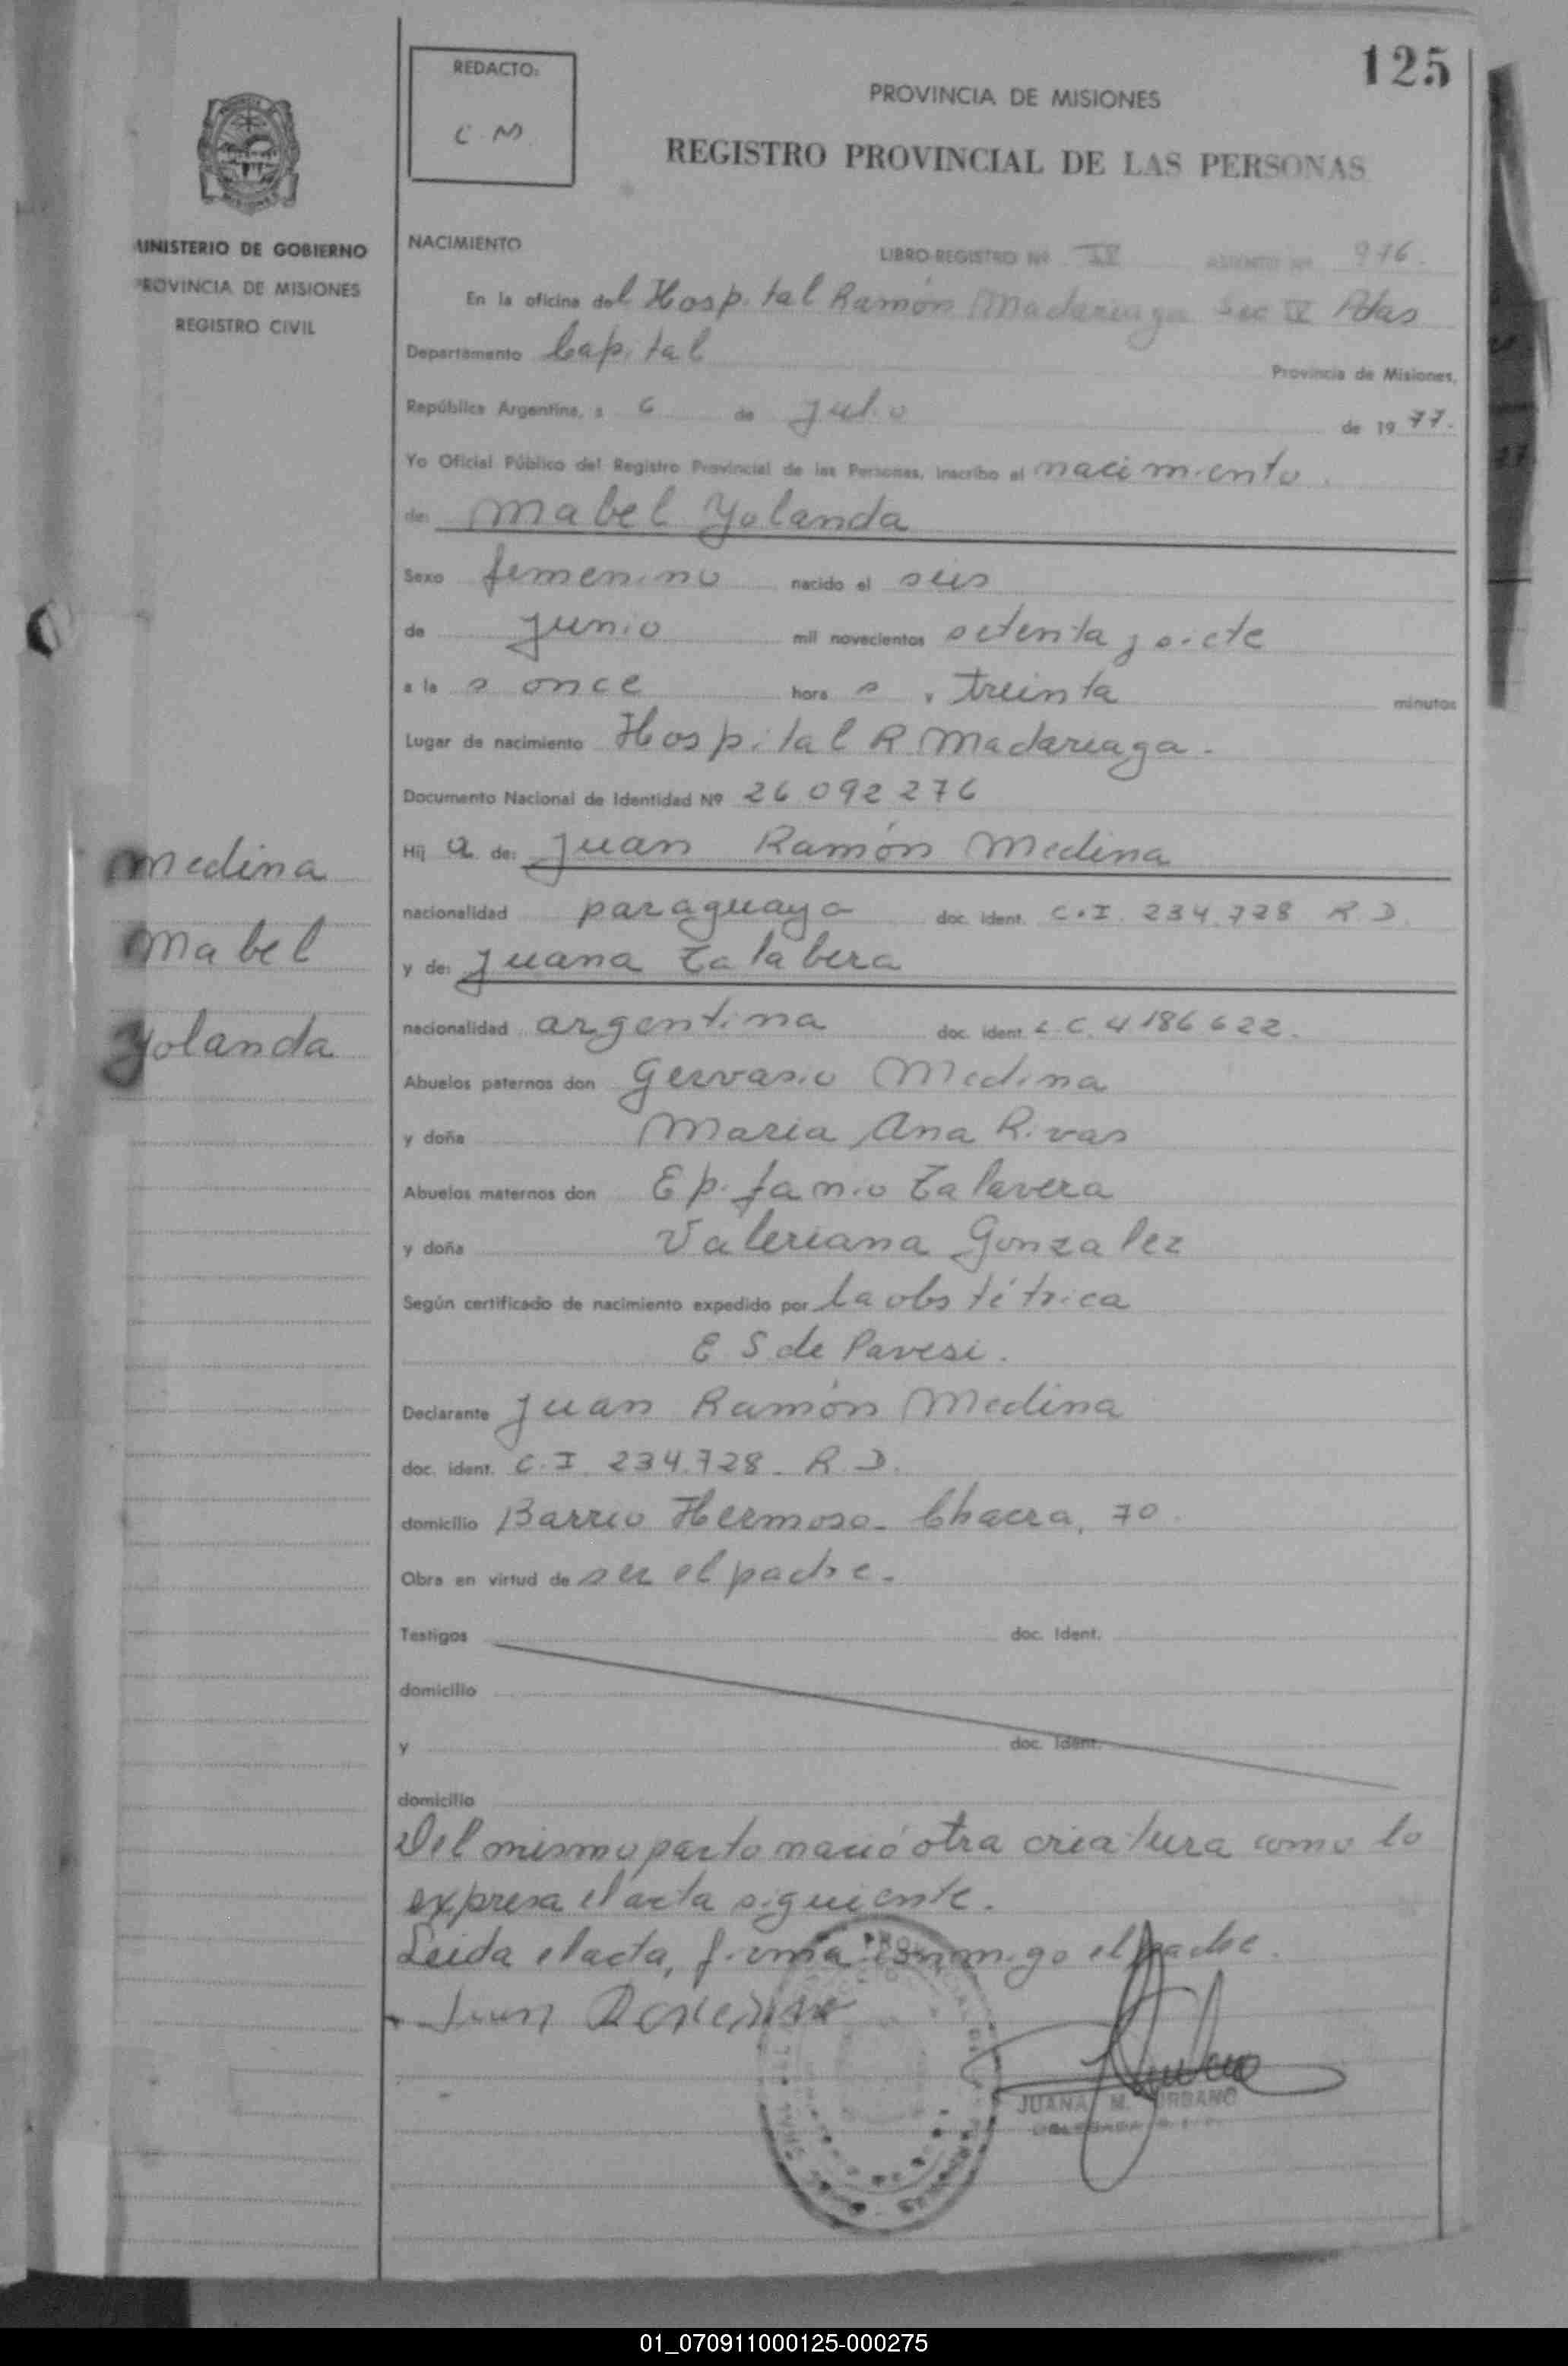 125
REDACTO:
C. M.
PROVINCIA DE MISIONES
REGISTRO PROVINCIAL DE LAS PERSONAS
MINISTERIO DE GOBIERNO
PROVINCIA DE MISIONES
REGISTRO CIVIL
NACIMIENTO LIBRO-REGISTRO Nº IV ASIENTO Nº 976.
En la oficina del Hospital Ramón Madariaga Sec IV Pdas
Departamento Capital Provincia de Misiones,
República Argentina, a 6 de julio de 1977.
Yo Oficial Público del Registro Provincial de las Personas, inscribo el nacimiento
de: Mabel Yolanda
Sexo femenino nacido el seis
de junio mil novecientos setenta y siete
a las once horas, treinta minutos
Lugar de nacimiento Hospital R. Madariaga.
Documento Nacional de Identidad Nº 26 092 276
Hija de: Juan Ramón Medina
nacionalidad paraguaya doc. ident. C.I. 234.728 R.D.
y de: Juana Talabera
nacionalidad argentina doc. ident. L C. 4186622.
Abuelos paternos don Gervasio Medina
y doña Maria Ana Rivas
Abuelos maternos don Epifanio Talavera
y doña Valeriana Gonzalez
Según certificado de nacimiento expedido por la obstétrica
E S. de Pavesi.
Declarante Juan Ramón Medina
doc. ident. C.I. 234.728 - R.D.
domicilio Barrio Hermoso - Chacra, 70.
Obra en virtud de ser el padre.
Testigos doc. Ident.
domicilio
y doc. Ident.
domicilio
Del mismo parto nació otra criatura como lo
expresa el acta siguiente.
Leida el acta, firma conmigo el padre.
Juan
JUANA M. URBANO
DELEGADA
Medina
Mabel
Yolanda
01_070911000125-000275